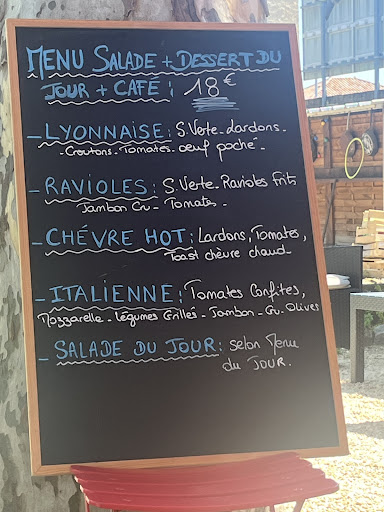 MENU SALADE + DESSERT DU
JOUR + CAFÉ : 18€
- LYONNAISE : S. Verte - Lardons -
- Croutons - Tomates - oeuf poché -
- RAVIOLES : S. Verte - Ravioles frits
Jambon Cru - Tomates -
- CHÉVRE HOT : Lardons, Tomates,
Toast chèvre chaud -
- ITALIENNE : Tomates Confites,
Mozzarelle - légumes Grillés - Jambon - Cru - Olives
- SALADE DU JOUR : selon Menu
du JOUR.